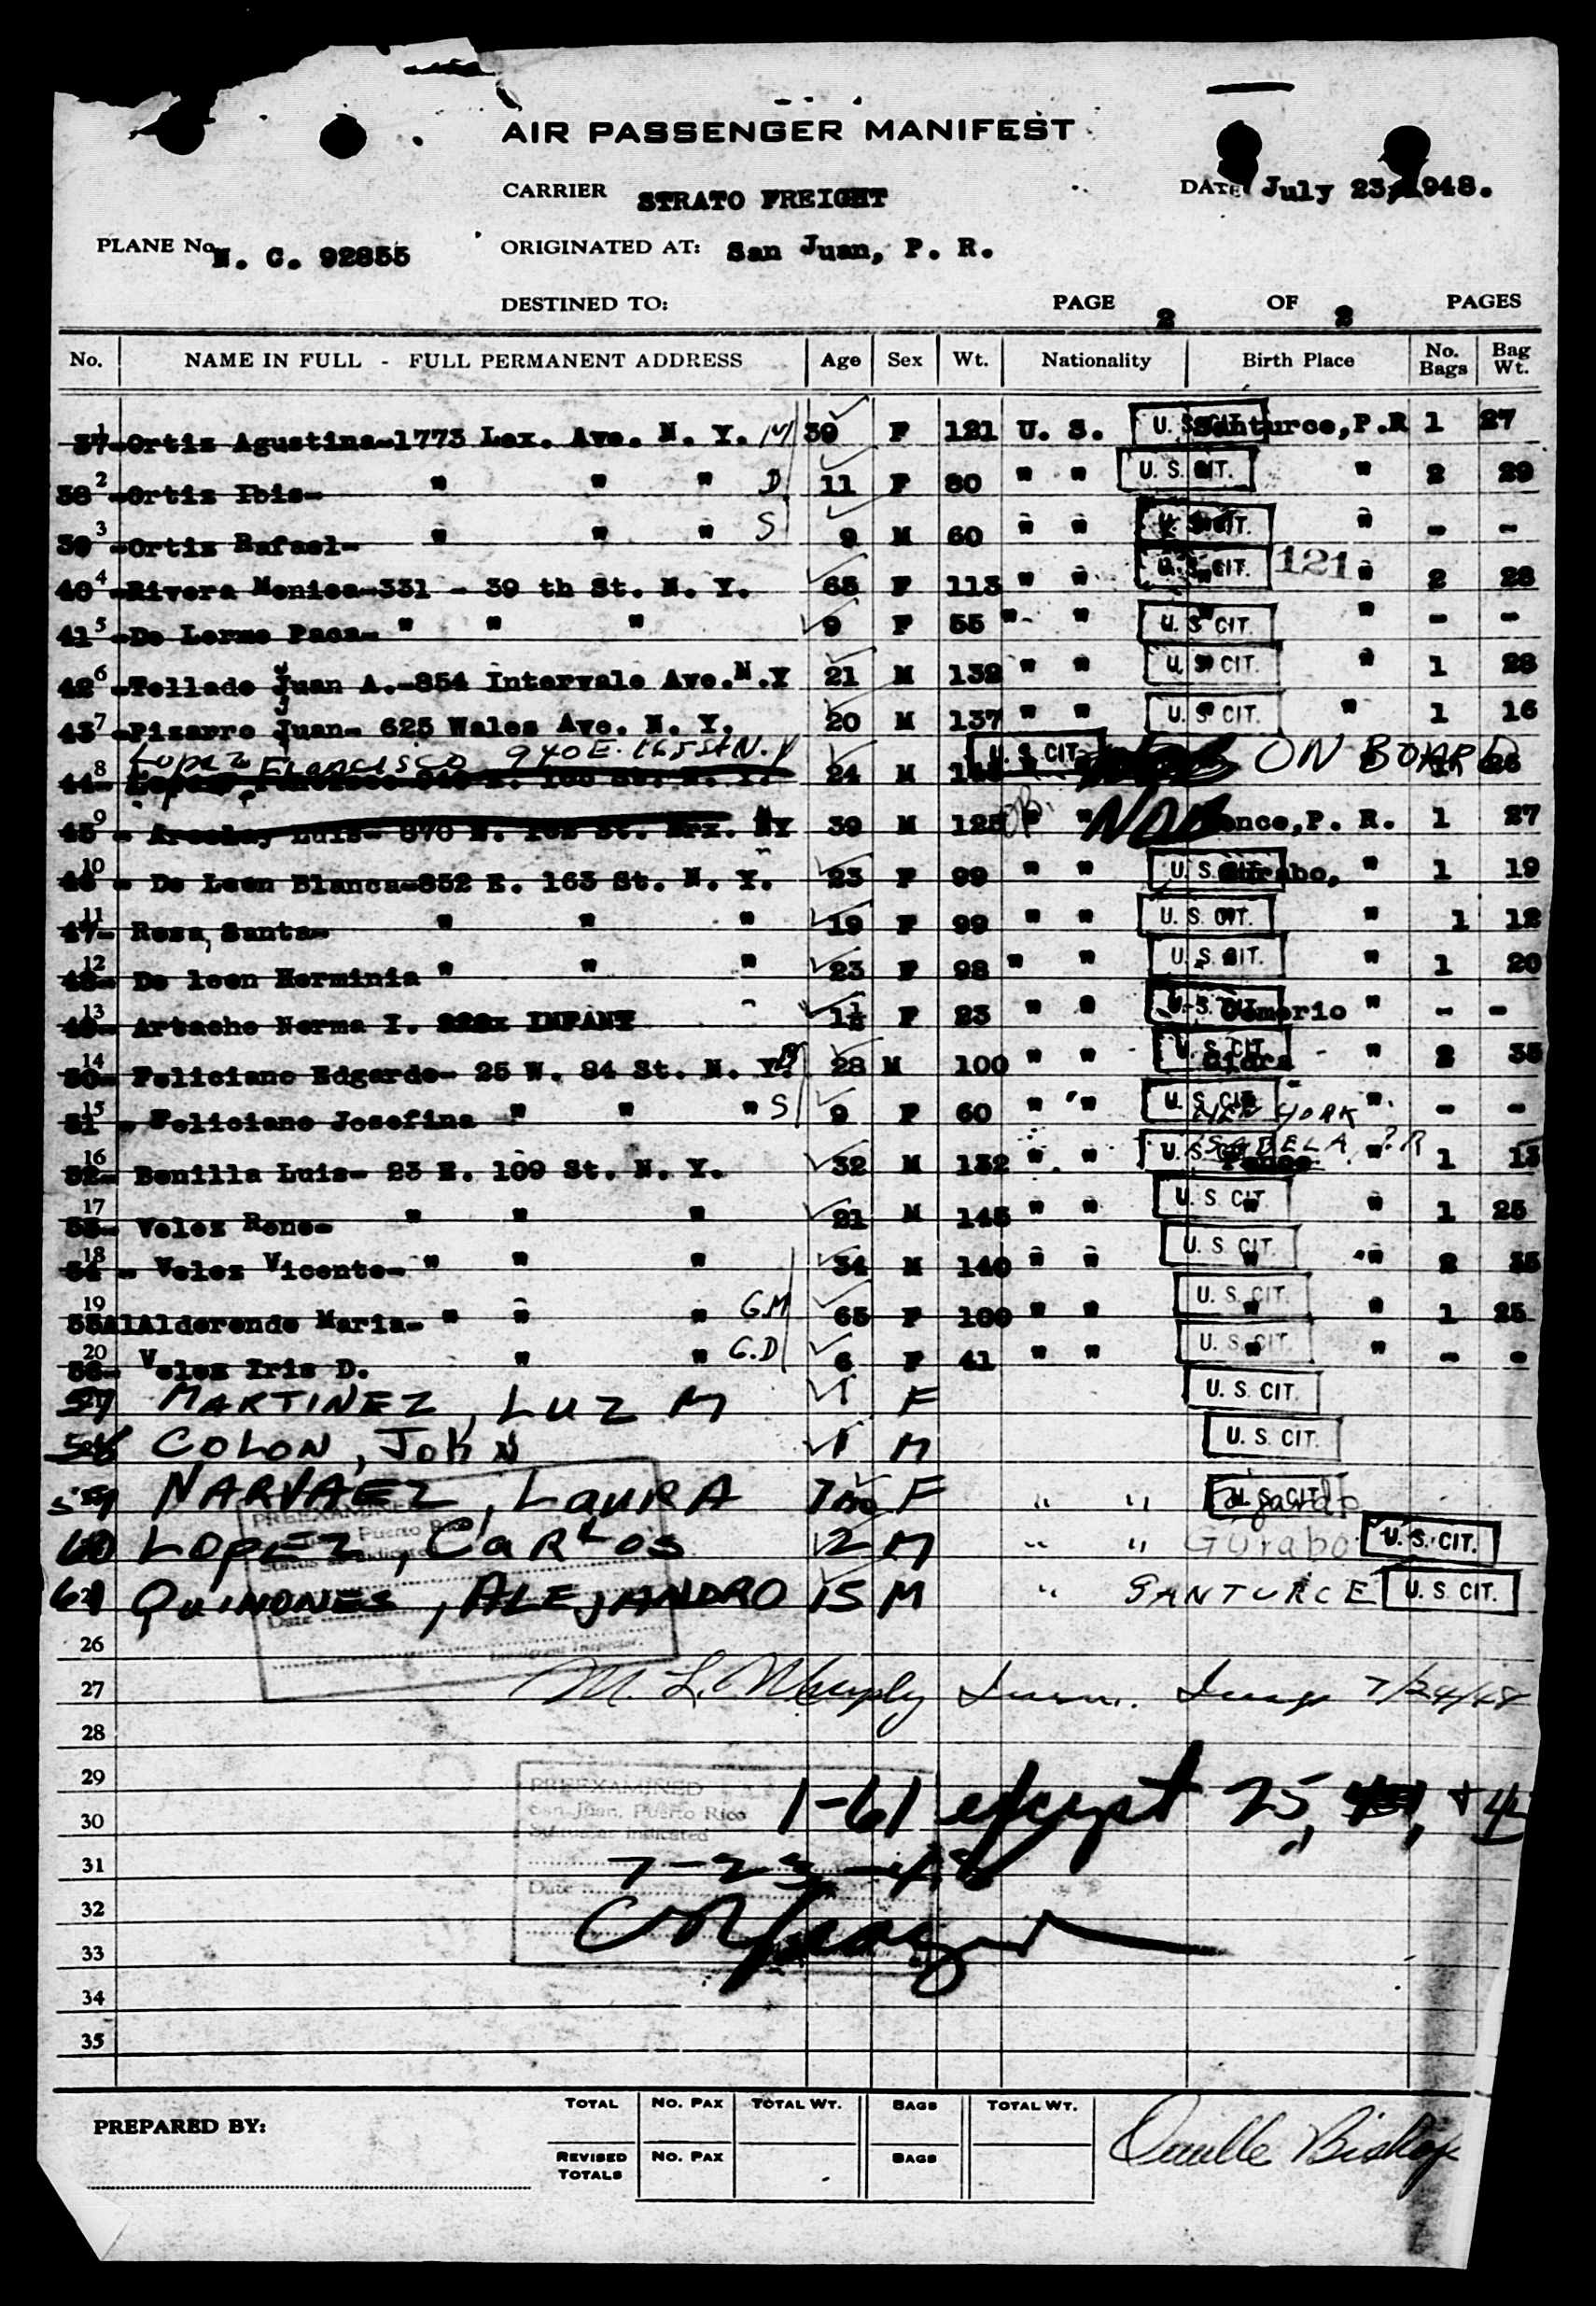 AIR PASSENGER MANIFEST
CARRIER STRATO FREIGHT DATE July 23, 1948.
PLANE No. N. C. 92855 ORIGINATED AT: San Juan, P. R.
DESTINED TO: PAGE 2 OF 2 PAGES
No. NAME IN FULL - FULL PERMANENT ADDRESS Age Sex Wt. Nationality Birth Place No. Bags Bag Wt.
37 1 -Ortiz Agustina-1773 Lex. Ave. N. Y. M 39 F 121 U. S. U. S. CIT. Santurce,P.R 1 27
38 2 -Ortiz Ibis- " " " D 11 F 80 " " U. S. CIT. " 2 29
39 3 -Ortiz Rafael- " " " S 9 M 60 " " U. S. CIT. " - -
40 4 -Rivera Monica-331 - 39 th St. N. Y. 65 F 113 " " U. S. CIT. 121 " 2 28
41 5 -De Lerme Paca- " " " 9 F 55 " " U. S. CIT. " " - -
42 6 -Tellado Juan A.-854 Intervale Ave.N.Y 21 M 132 " " U. S. CIT. " " 1 28
43 7 -Pizarro Juan- 625 Wales Ave. N. Y. 20 M 137 " " U. S. CIT. " " 1 16
Lopez Francisco 940 E. 165 St N.Y
44 8 - 24 M U. S. CIT. ON BOARD 26
45 9 - Luis- 870 E. St. Brx. NY 39 M 128 " " NOB Ponce,P. R. 1 27
46 10 - De Leon Blanca-852 E. 163 St. N. Y. 23 F 99 " " U. S. CIT. Gurabo, " 1 19
47 11 - Rosa, Santa- " " " 19 F 99 " " U. S. CIT. " " 1 12
48 12 - De leon Herminia " " " 23 F 98 " " U. S. CIT. " " 1 20
49 13 - Artache Norma I. INFANT F 23 " " U. S. CIT. Comerio " - -
50 14 - Feliciano Edgardo- 25 W. 84 St. N. Y. 28 M 100 " " U. S. CIT. " 2 35
51 15 - Feliciano Josefina " " " S 9 F 60 " " U. S. CIT. NEW YORK " - -
52 16 - Bonilla Luis- 23 E. 109 St. N. Y. 32 M 132 " " U. S. CIT. ISABELA P R Ponce " 1 13
53 17 - Velez Rene- " " " 21 M 145 " " U. S. CIT. " " 1 25
54 18 - Velez Vicente- " " " 34 M 140 " " U. S. CIT. " " 2 35
55 19 AlAlderende Maria- " " " G.M 65 F 100 " " U. S. CIT. " " 1 25
56 20 - Velez Iris D. " " G.D 6 F 41 " " U. S. CIT. " " - -
57 MARTINEZ, LUZ M 1 F U. S. CIT.
58 COLON, JOHN 1 M U. S. CIT.
59 NARVAEZ, LAURA 7 mo F " " Fajardo U. S. CIT.
60 LOPEZ, CARLOS 2 M " " Gurabo U. S. CIT.
61 QUINONES, ALEJANDRO 15 M " SANTURCE U. S. CIT.
PREEXAMINED
Puerto Rico
Status as Indicated
Date
Immigrant Inspector.
26
27 M. L. Murphy Imm. Insp 7/24/48
28
29 PREEXAMINED
San Juan, Puerto Rico
30 Status as Indicated
1-61 except 25,
31 7-23-48
Date
32
33
34
35
PREPARED BY:
TOTAL No. PAX TOTAL WT. BAGS TOTAL WT.
REVISED TOTALS No. PAX BAGS
Bishop